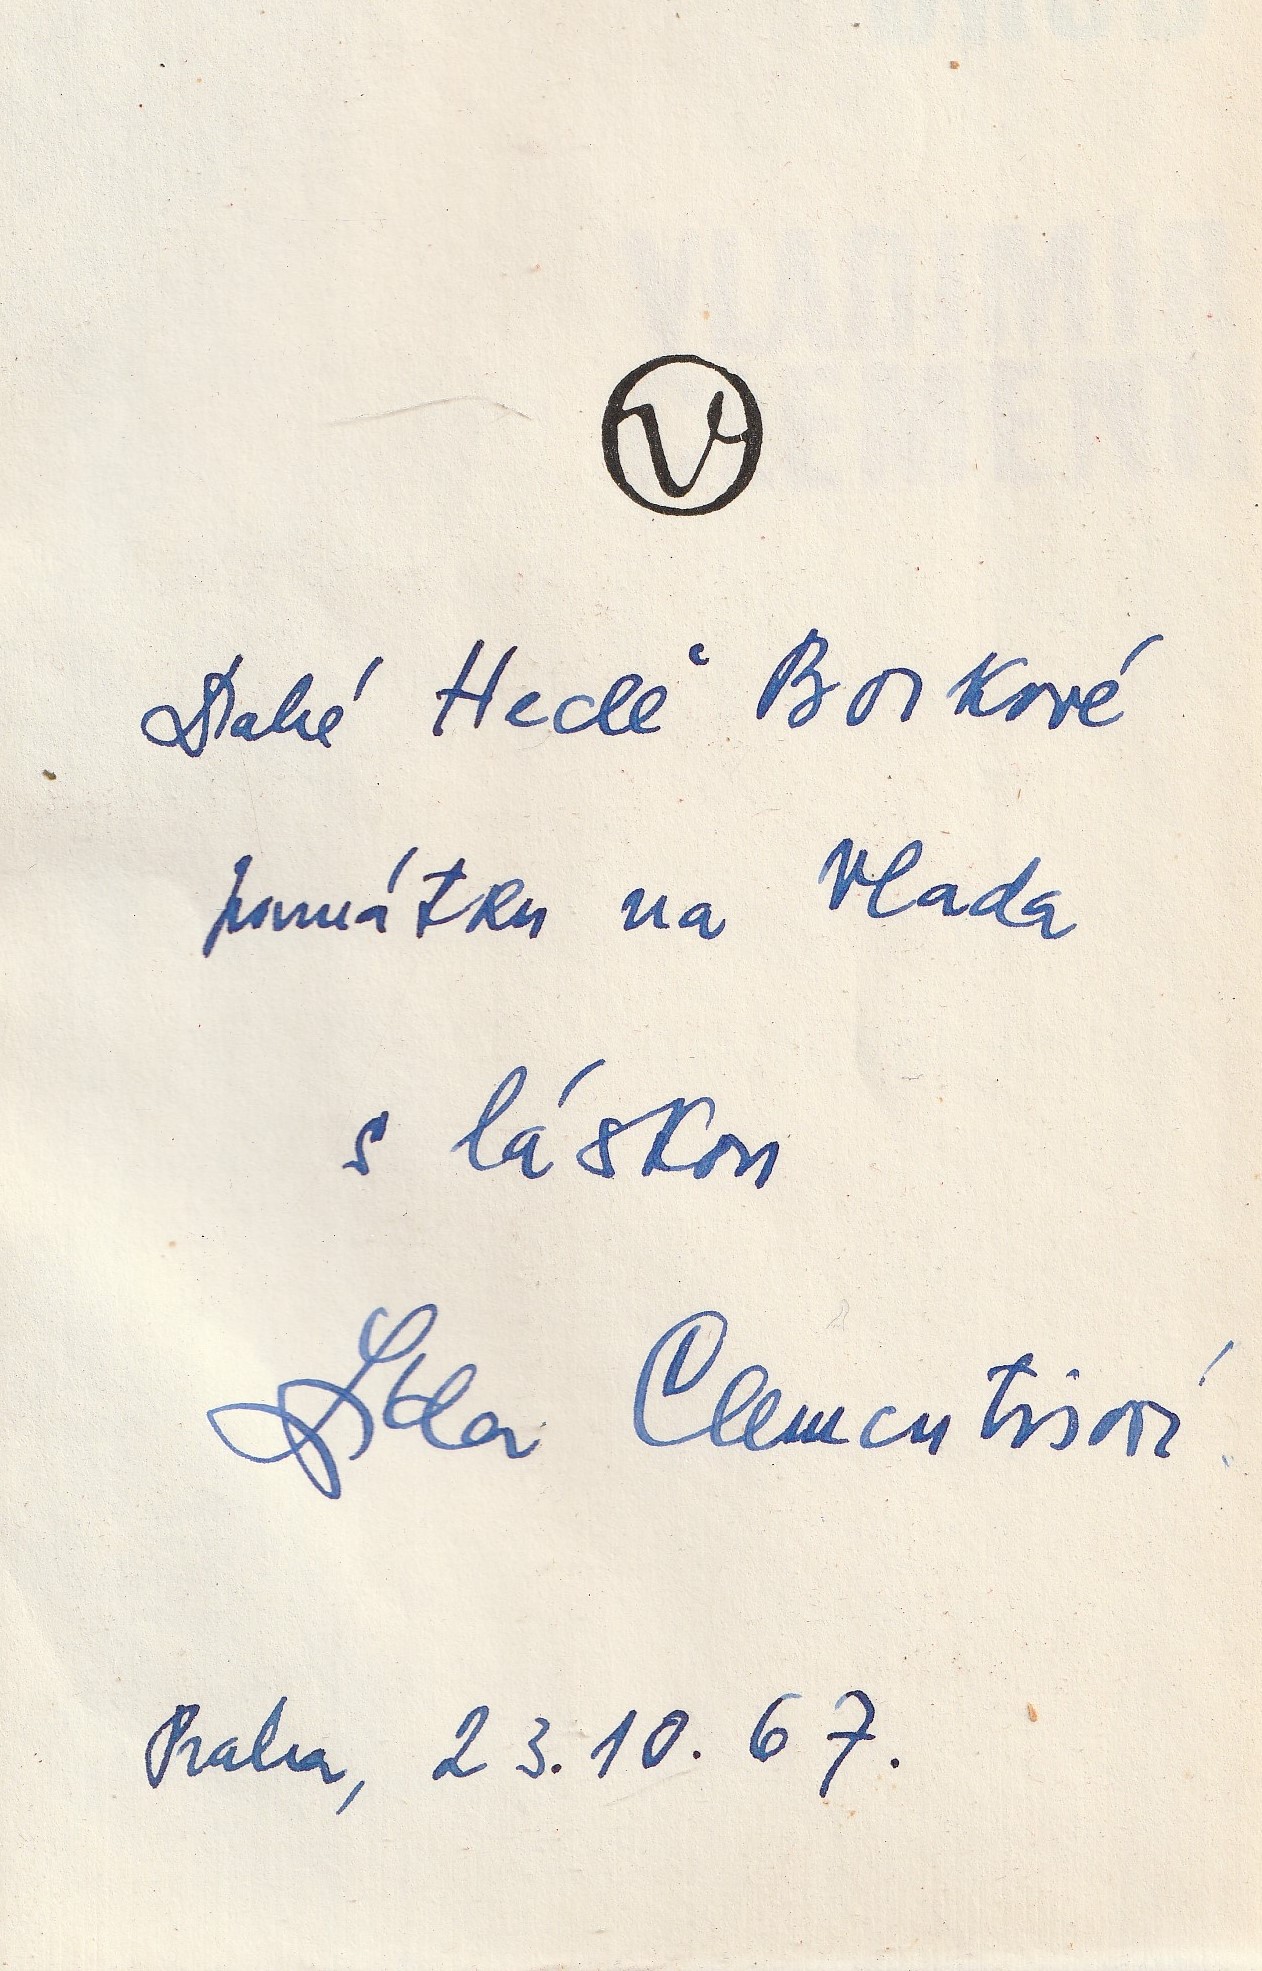 V
Drahé Hedě Borkové
památku na Vlada
s láskou
Lída Clementisová
Praha, 23.10.67.